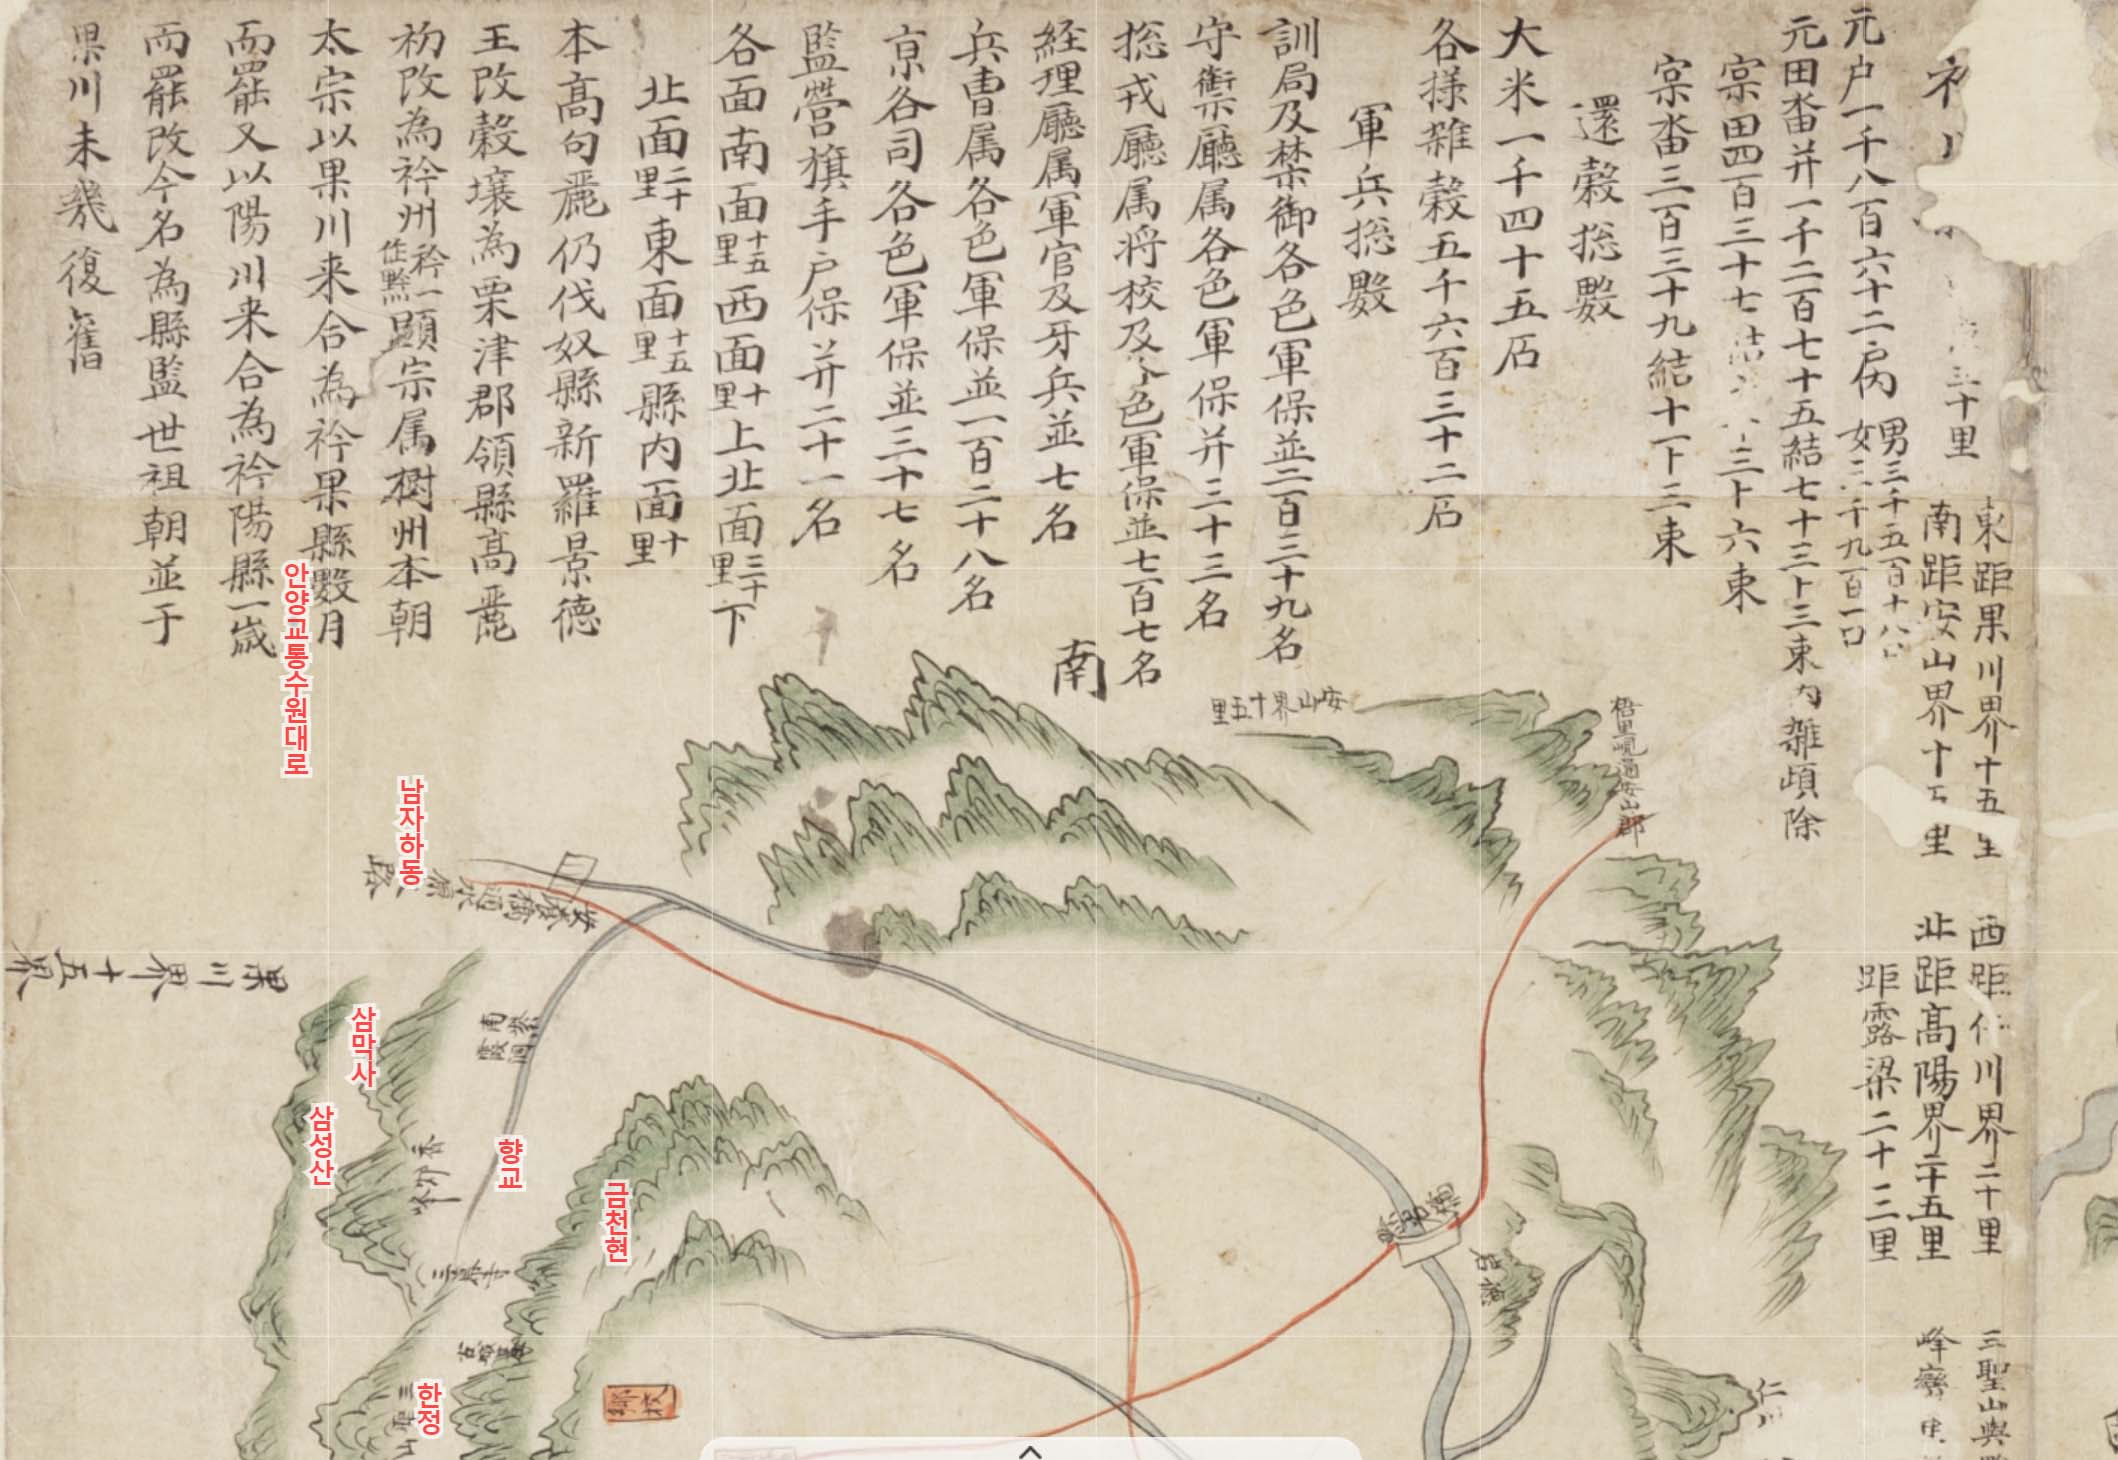 三十里
東距果川界十五里
南距安山界十五里
西距仁川界二十里
北距高陽界二十五里
距露梁二十二里
三聖山與
元戶一千八百六十二戶內
男三千五百十八口
女三千九百一口
元田畓并一千二百七十五結七十三卜三束內雜頉除
宲田四百三十七結 三卜六束
宲畓三百三十九結十卜三束
還穀捴數
大米一千四十五石
各㨾雜穀五千六百三十二石
軍兵捴數
訓局及禁御各色軍保並二百三十九名
守禦廳属各色軍保并三十三名
捴戎廳属将校及各色軍保並七百七名
経理廳属軍官及牙兵並七名
兵曹属各色軍保並一百二十八名
京各司各色軍保並三十七名
監營旗手戶保并二十一名
各面南面十五里西面十里上北面三十里下
北面二十里東面十五里縣內面十里
本高句麗仍伐奴縣新羅景德
王改穀壤為栗津郡領縣高麗
初改為衿州衿一作黔顯宗属樹州本朝
太宗以果川来合為衿果縣數月
而罷又以陽川来合為衿陽縣一歲
而罷改今名為縣監世祖朝並于
果川未幾復舊
南
安山界十五里
梧里峴通安山郡
果川界十五界
안양교통수원대로
남자하동
삼막사
삼성산
향교
금천현
한정
南紫霞洞
三幕寺
鄕校